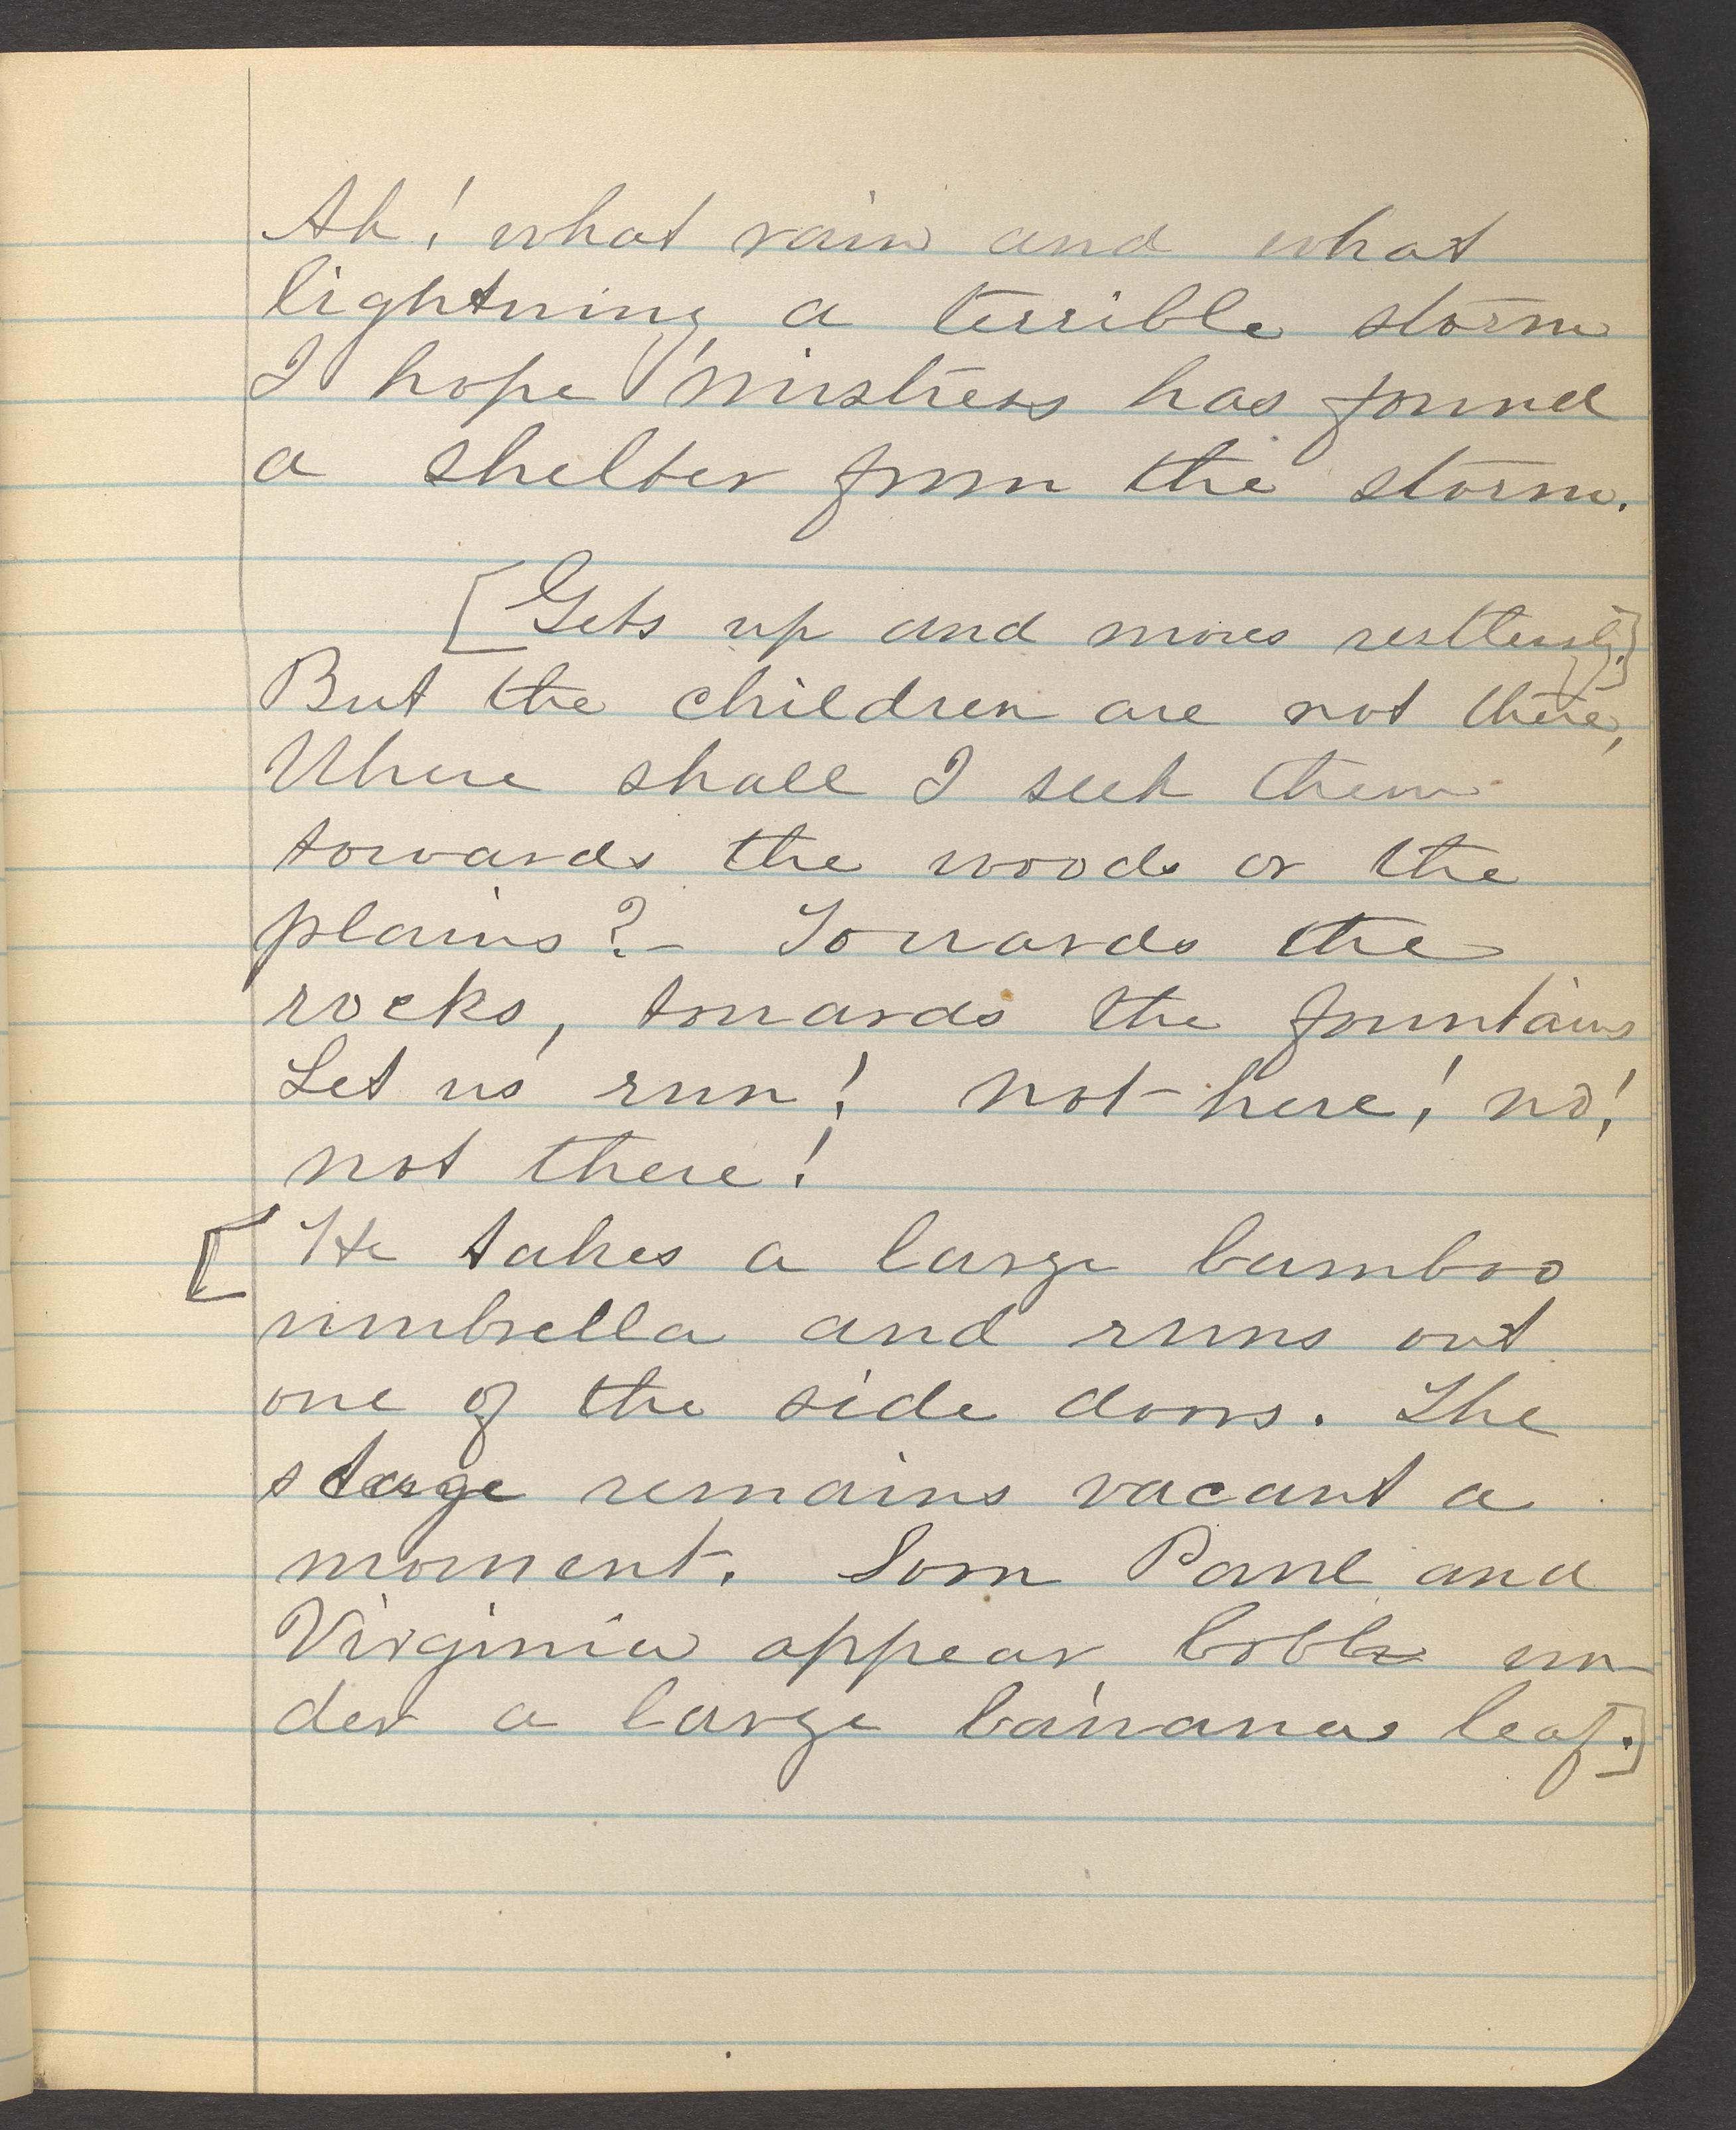 Ah! what rain and what
lightning, a terrible storm
I hope mistress has found
a shelter from the storm.
[Gets up and moves restlessly.]
But the children are not there,
Where shall I seek them
towards the woods or the
plains?- Towards the
rocks, towards the fountains
Let us run! not here! no!
not there!
[He takes a large bamboo
umbrella and runs out
one of the side doors. The
stage remains vacant a
moment. Soon Paul and
Virginia appear both un-
der a large banana leaf.]